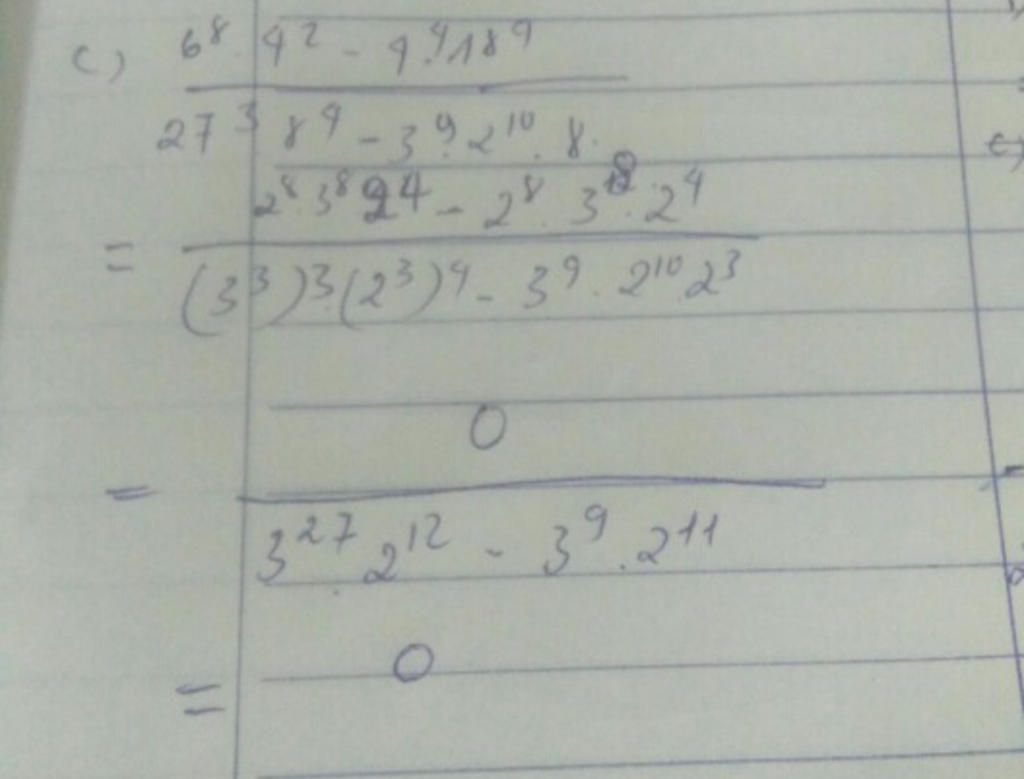 c) 6⁸ 4² - 4.⁴18⁹
27³ 8⁴ - 3⁹.2¹⁰.8.
= 2⁸.3⁸ 2⁴ - 2⁸.3¹⁸.2⁴
(3³)³.(2³)⁴ - 3⁹.2¹⁰.2³
= 0
3²⁷.2¹² - 3⁹.2¹¹
= 0